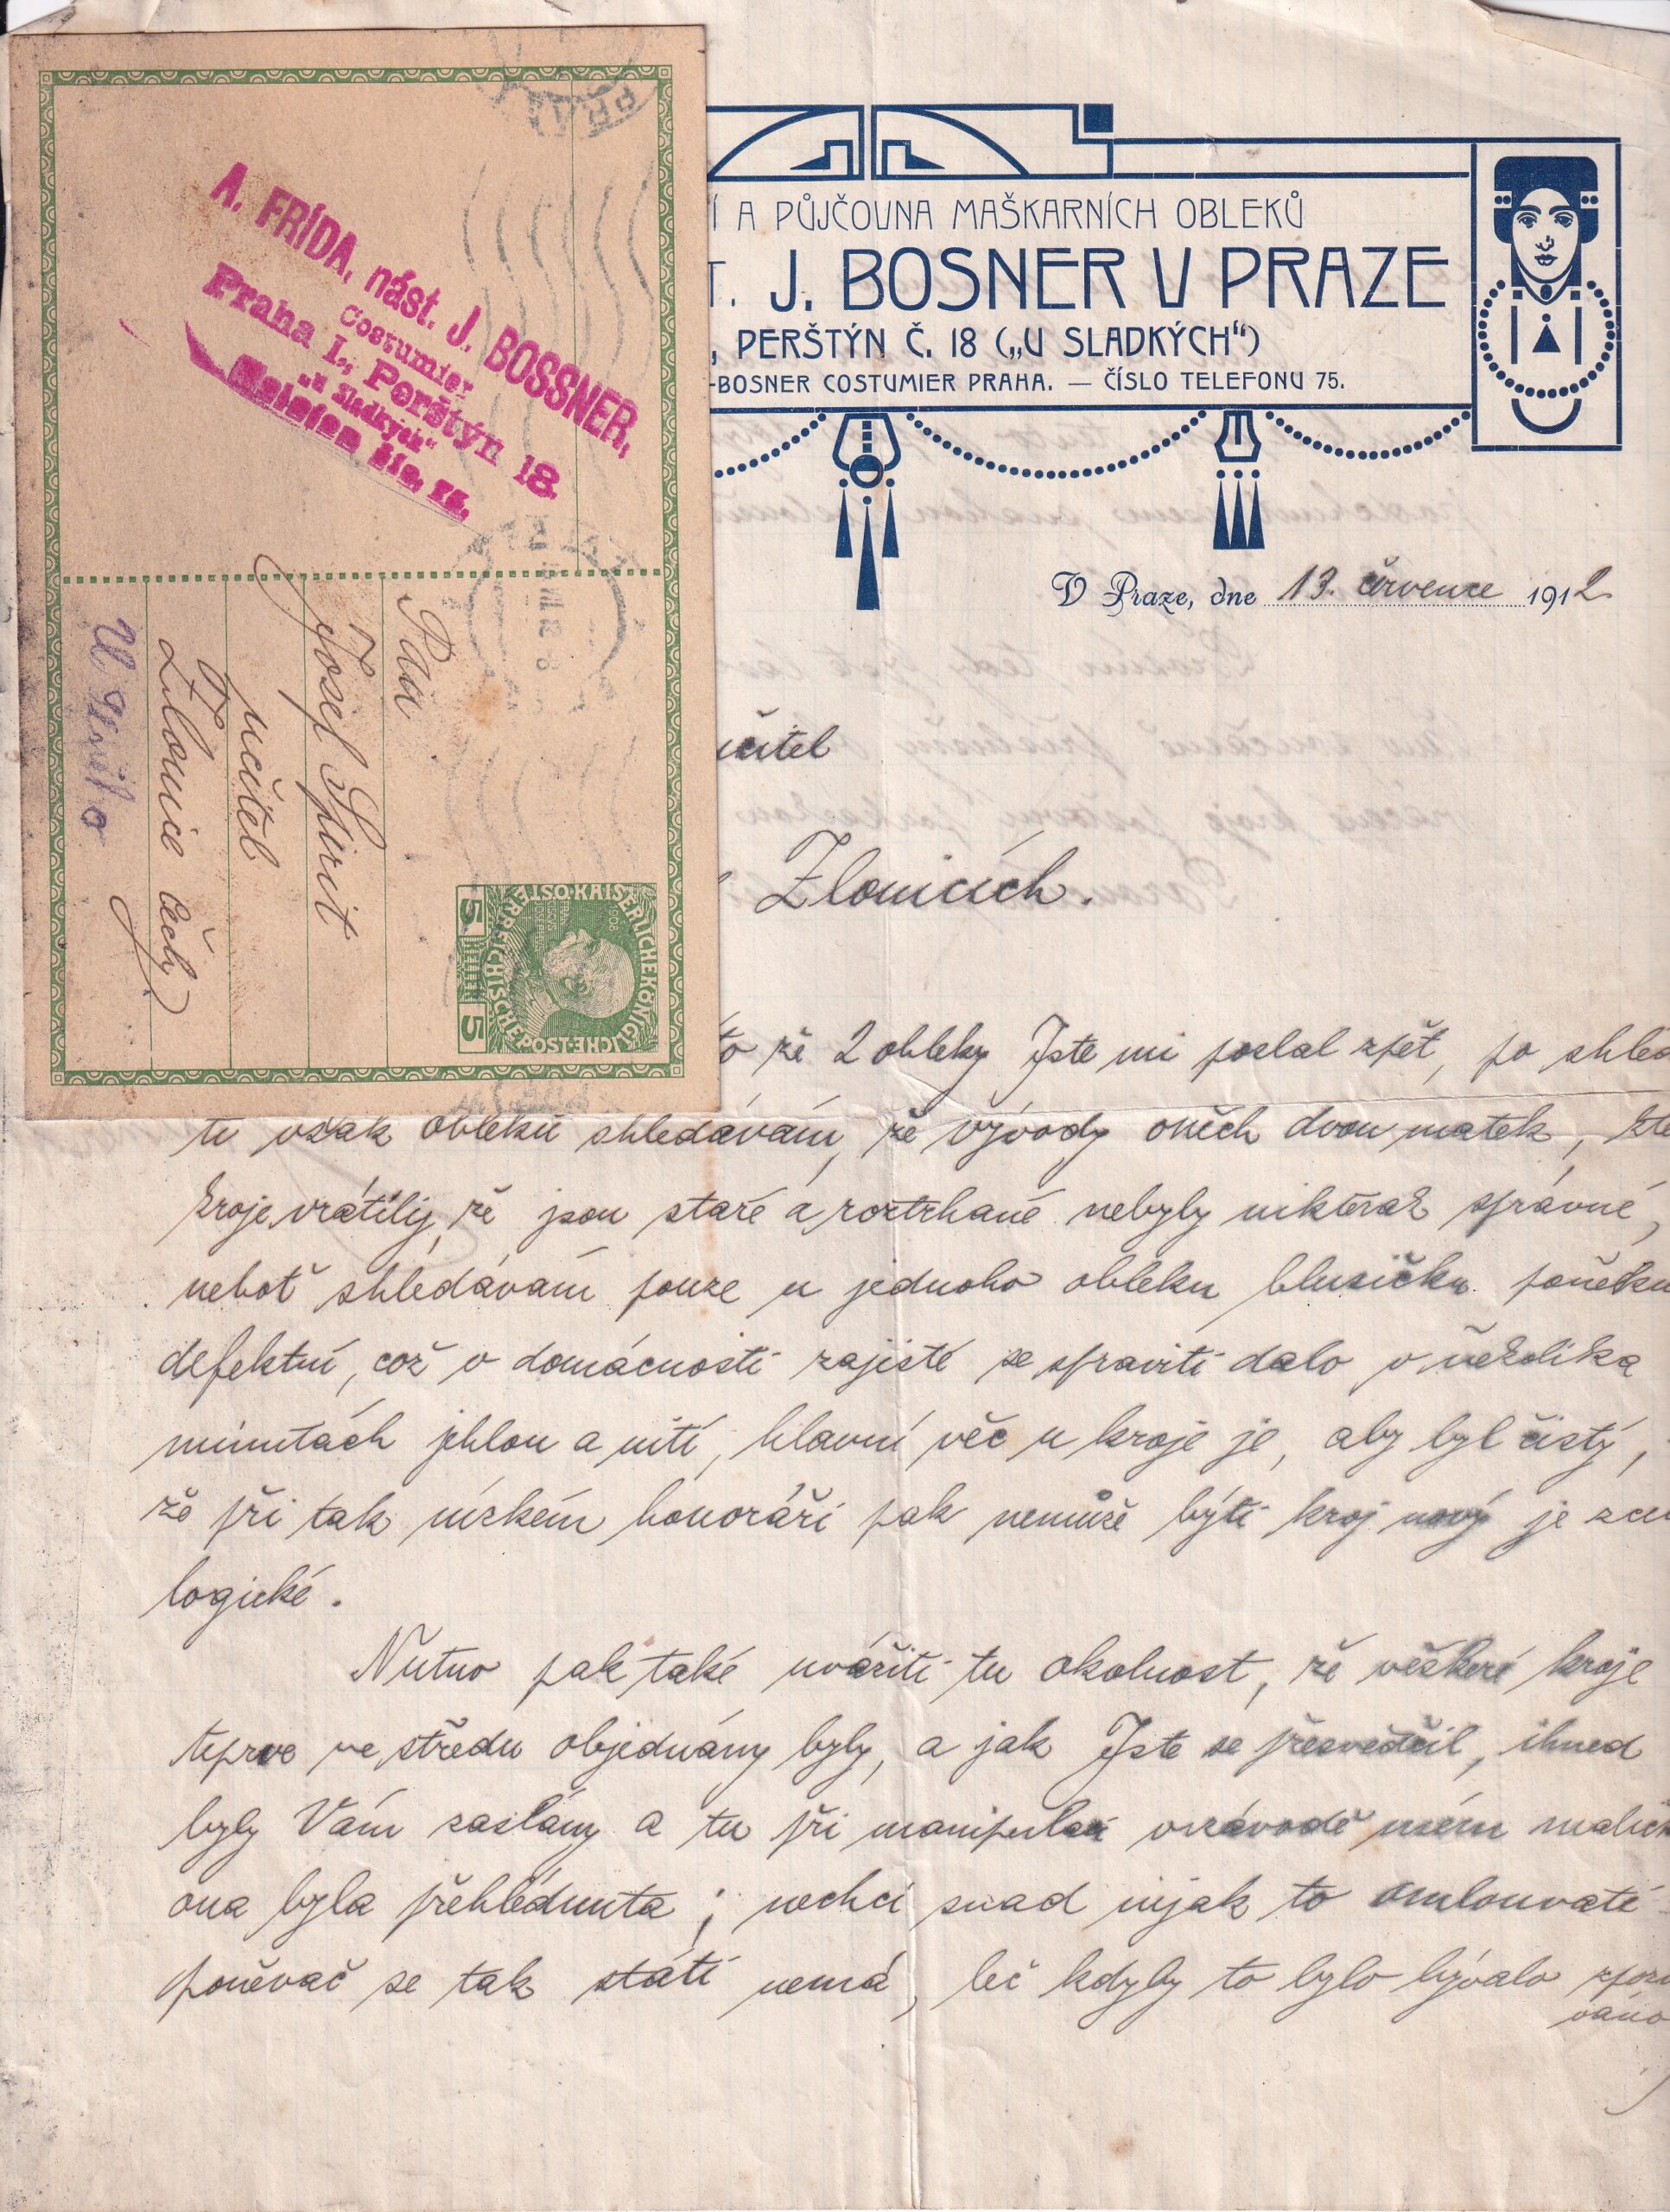 A. FRÍDA, nást. J. BOSSNER,
Costumier
Praha I., Perštýn 18.
„u Sladkých“
Telefon čís. 75.
PRA
Pan
Josef
učitel
Zlonice Čechy
KAISERLICHE KÖNIGLICHE ÖSTERREICHISCHE POST
1908
5 5
Í A PŮJČOVNA MAŠKARNÍCH OBLEKŮ
T. J. BOSNER V PRAZE
, PERŠTÝN Č. 18 („U SLADKÝCH“)
-BOSNER COSTUMIER PRAHA. — ČÍSLO TELEFONU 75.
V Praze, dne 13. července 1912
učitel
Zlonicích.
to že 2 obleky Jste mi poslal zpět, po shléd
tu však obleků shledávám, že vývody oněch dvou matek, kte
kroje vrátily, že jsou staré a roztrhané nebyly nikterak správné,
neboť shledávám pouze u jednoho obleku blusičku poněku
defektní, což v domácnosti zajisté se spraviti dalo v několika
minutách jehlou a nití, hlavní věc u kroje je, aby byl čistý,
že při tak nízkém honoráři pak nemůže býti kroj nový je zce
logické.
Nutno pak také uvážiti tu okolnost, že veškeré kroje
teprve ve středu objednány byly, a jak Jste se přesvědčil, ihned
byly Vám zaslány a tu při manipulaci v závodě mém malič
ona byla přehlédnuta; nechci snad nijak to omlouvati
poněvač se tak státi nemá, leč kdyby to bylo bývalo zpozo
váno